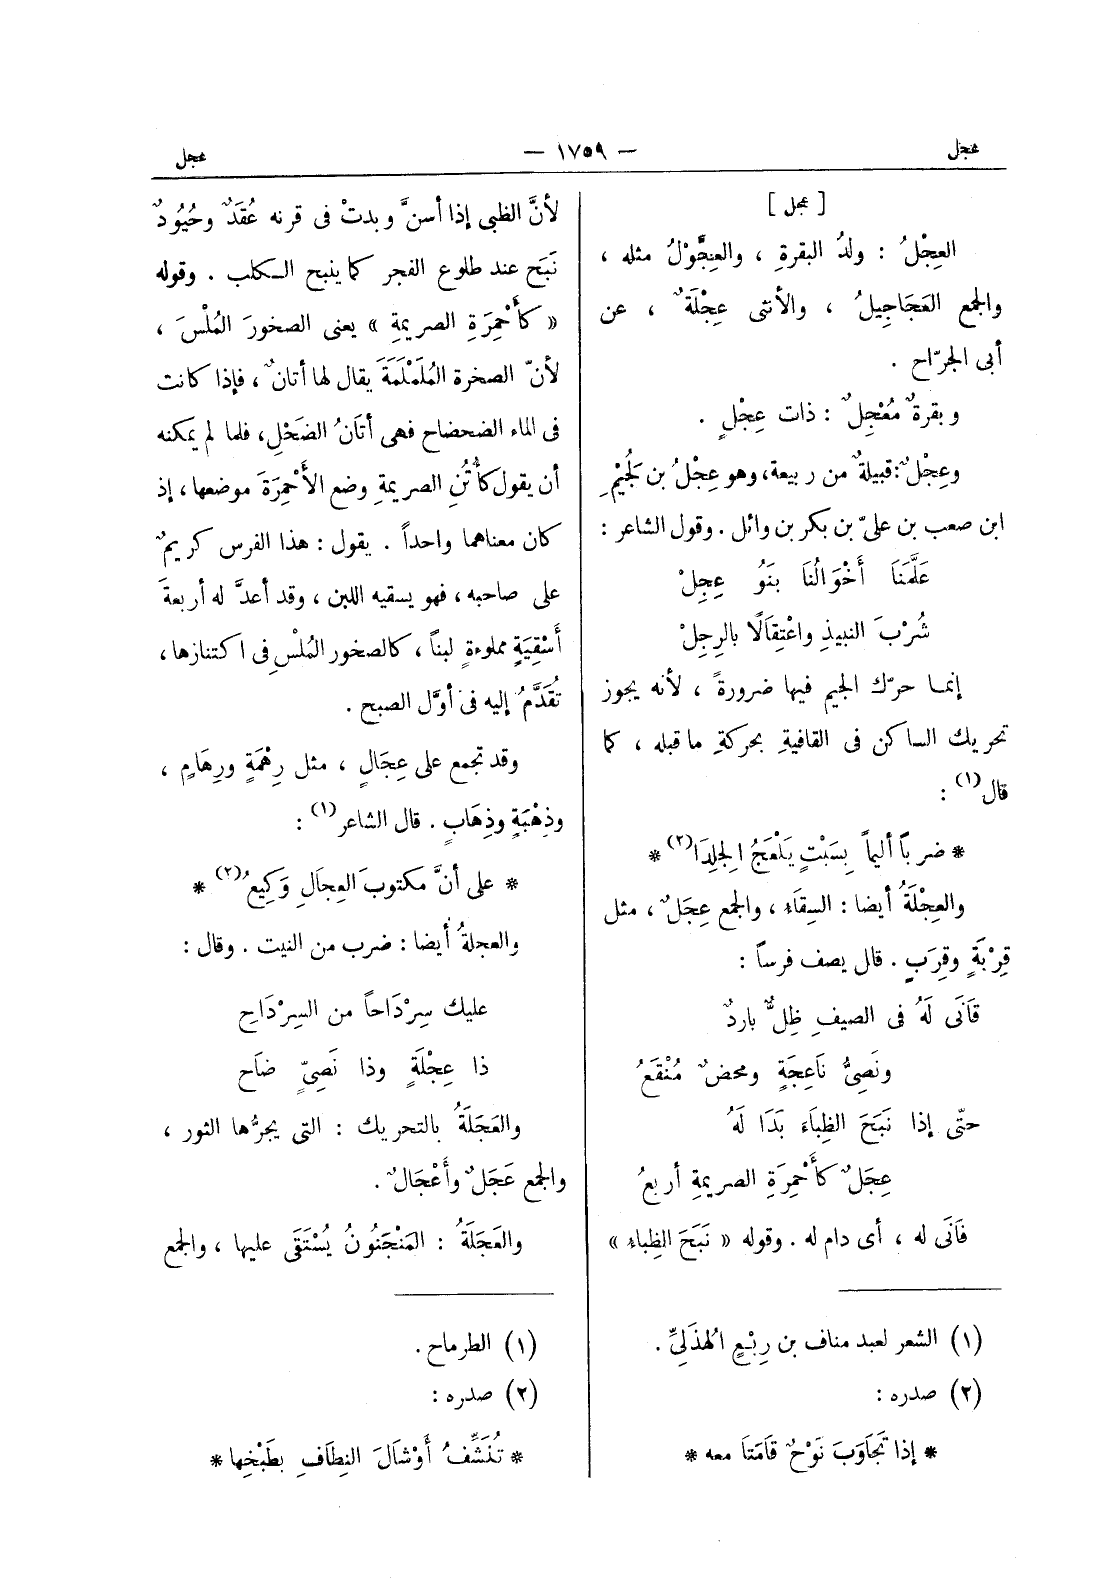 عجل — ١٧٥٩ — عجل
[ عجل ]
العِجْلُ : ولدُ البقرةِ ، والعِجَّوْلُ مثله ،
والجمع العَجَاجِيلُ ، والأنثى عِجْلَةٌ ، عن
أبى الجرّاح .
وبقرةٌ مُعْجِلٌ : ذات عِجْلٍ .
وعِجْلٌ : قبيلةٌ من ربيعة، وهو عِجْلُ بن لُجَيْمِ
ابن صعب بن علىّ بن بكر بن وائل . وقول الشاعر :
عَلَّمَنَا أَخْوَالُنَا بَنُو عِجِلْ
شُرْبَ النبيذِ واعْتِقَالًا بالرِجِلْ
إنما حرّك الجيم فيها ضرورةً ، لأنه يجوز
تحريك الساكن فى القافيةِ بحركةِ ما قبله ، كما
قال(١) :
* ضرباً أليماً بِسَبْتٍ يَلْعَجُ الجِلِدَا(٢) *
والعِجْلَةُ أيضا : السِقَاء ، والجمع عِجَلٌ ، مثل
قِرْبَةٍ وقِرَبٍ . قال يصف فرساً :
قَانَى لَهُ فى الصيفِ ظِلٌّ باردٌ
ونَصِىُّ نَاعِجَةٍ ومحضٌ مُنْقَعُ
حتّى إذا نَبَحَ الظِبَاء بَدَا لَهُ
عِجَلٌ كَأَحْمِرَةِ الصريمةِ أربعُ
قَانَى له ، أى دام له . وقوله « نَبَحَ الظِباء »
(١) الشعر لعبد مناف بن رِبْعٍ الهذَلِىِّ .
(٢) صدره :
* إذا تَجَاوَبَ نَوْحٌ قَامَتَا معه *
لأنَّ الظبى إذا أسنَّ وبدتْ فى قرنه عُقَدٌ وحُيُودٌ
نَبَح عند طلوع الفجر كما ينبح الكلب . وقوله
« كَأَحْمِرَةِ الصريمةِ » يعنى الصخورَ المُلْسَ ،
لأنّ الصخرة المُلَمْلَمَةَ يقال لها أتانٌ ، فإذا كانت
فى الماء الضحضاح فهى أتَانُ الضَحْلِ، فلما لم يمكنه
أن يقول كأُتُنِ الصريمةِ وضع الأَحْمِرَةَ موضعها ، إذ
كان معناهما واحداً . يقول : هذا الفرس كريمٌ
على صاحبه ، فهو يسقيه اللبن ، وقد أعدَّ له أربعةَ
أَسْقِيَةٍ مملوءةٍ لبناً ، كالصخور المُلْسِ فى اكتنازها ،
تُقَدَّمُ إليه فى أوّل الصبح .
وقد تجمع على عِجَالٍ ، مثل رِهْمَةٍ ورِهَامٍ ،
وذِهْبَةٍ وذِهَابٍ . قال الشاعر(١) :
* على أنَّ مكتوبَ العِجَالِ وَكِيعُ(٢) *
والعجلةُ أيضا : ضرب من النبت . وقال :
عليك سِرْدَاحاً من السِرْدَاحِ
ذا عِجْلَةٍ وذا نَصِىٍّ ضَاحِ
والعَجَلَةُ بالتحريك : التى يجرُّها الثور ،
والجمع عَجَلٌ وأَعْجَالٌ .
والعَجَلَةُ : المَنْجَنُونُ يُسْتَقَى عليها ، والجمع
(١) الطرماح .
(٢) صدره :
* تُنَشِّفُ أَوْشَالَ النِطَافِ بطَبْخِها *